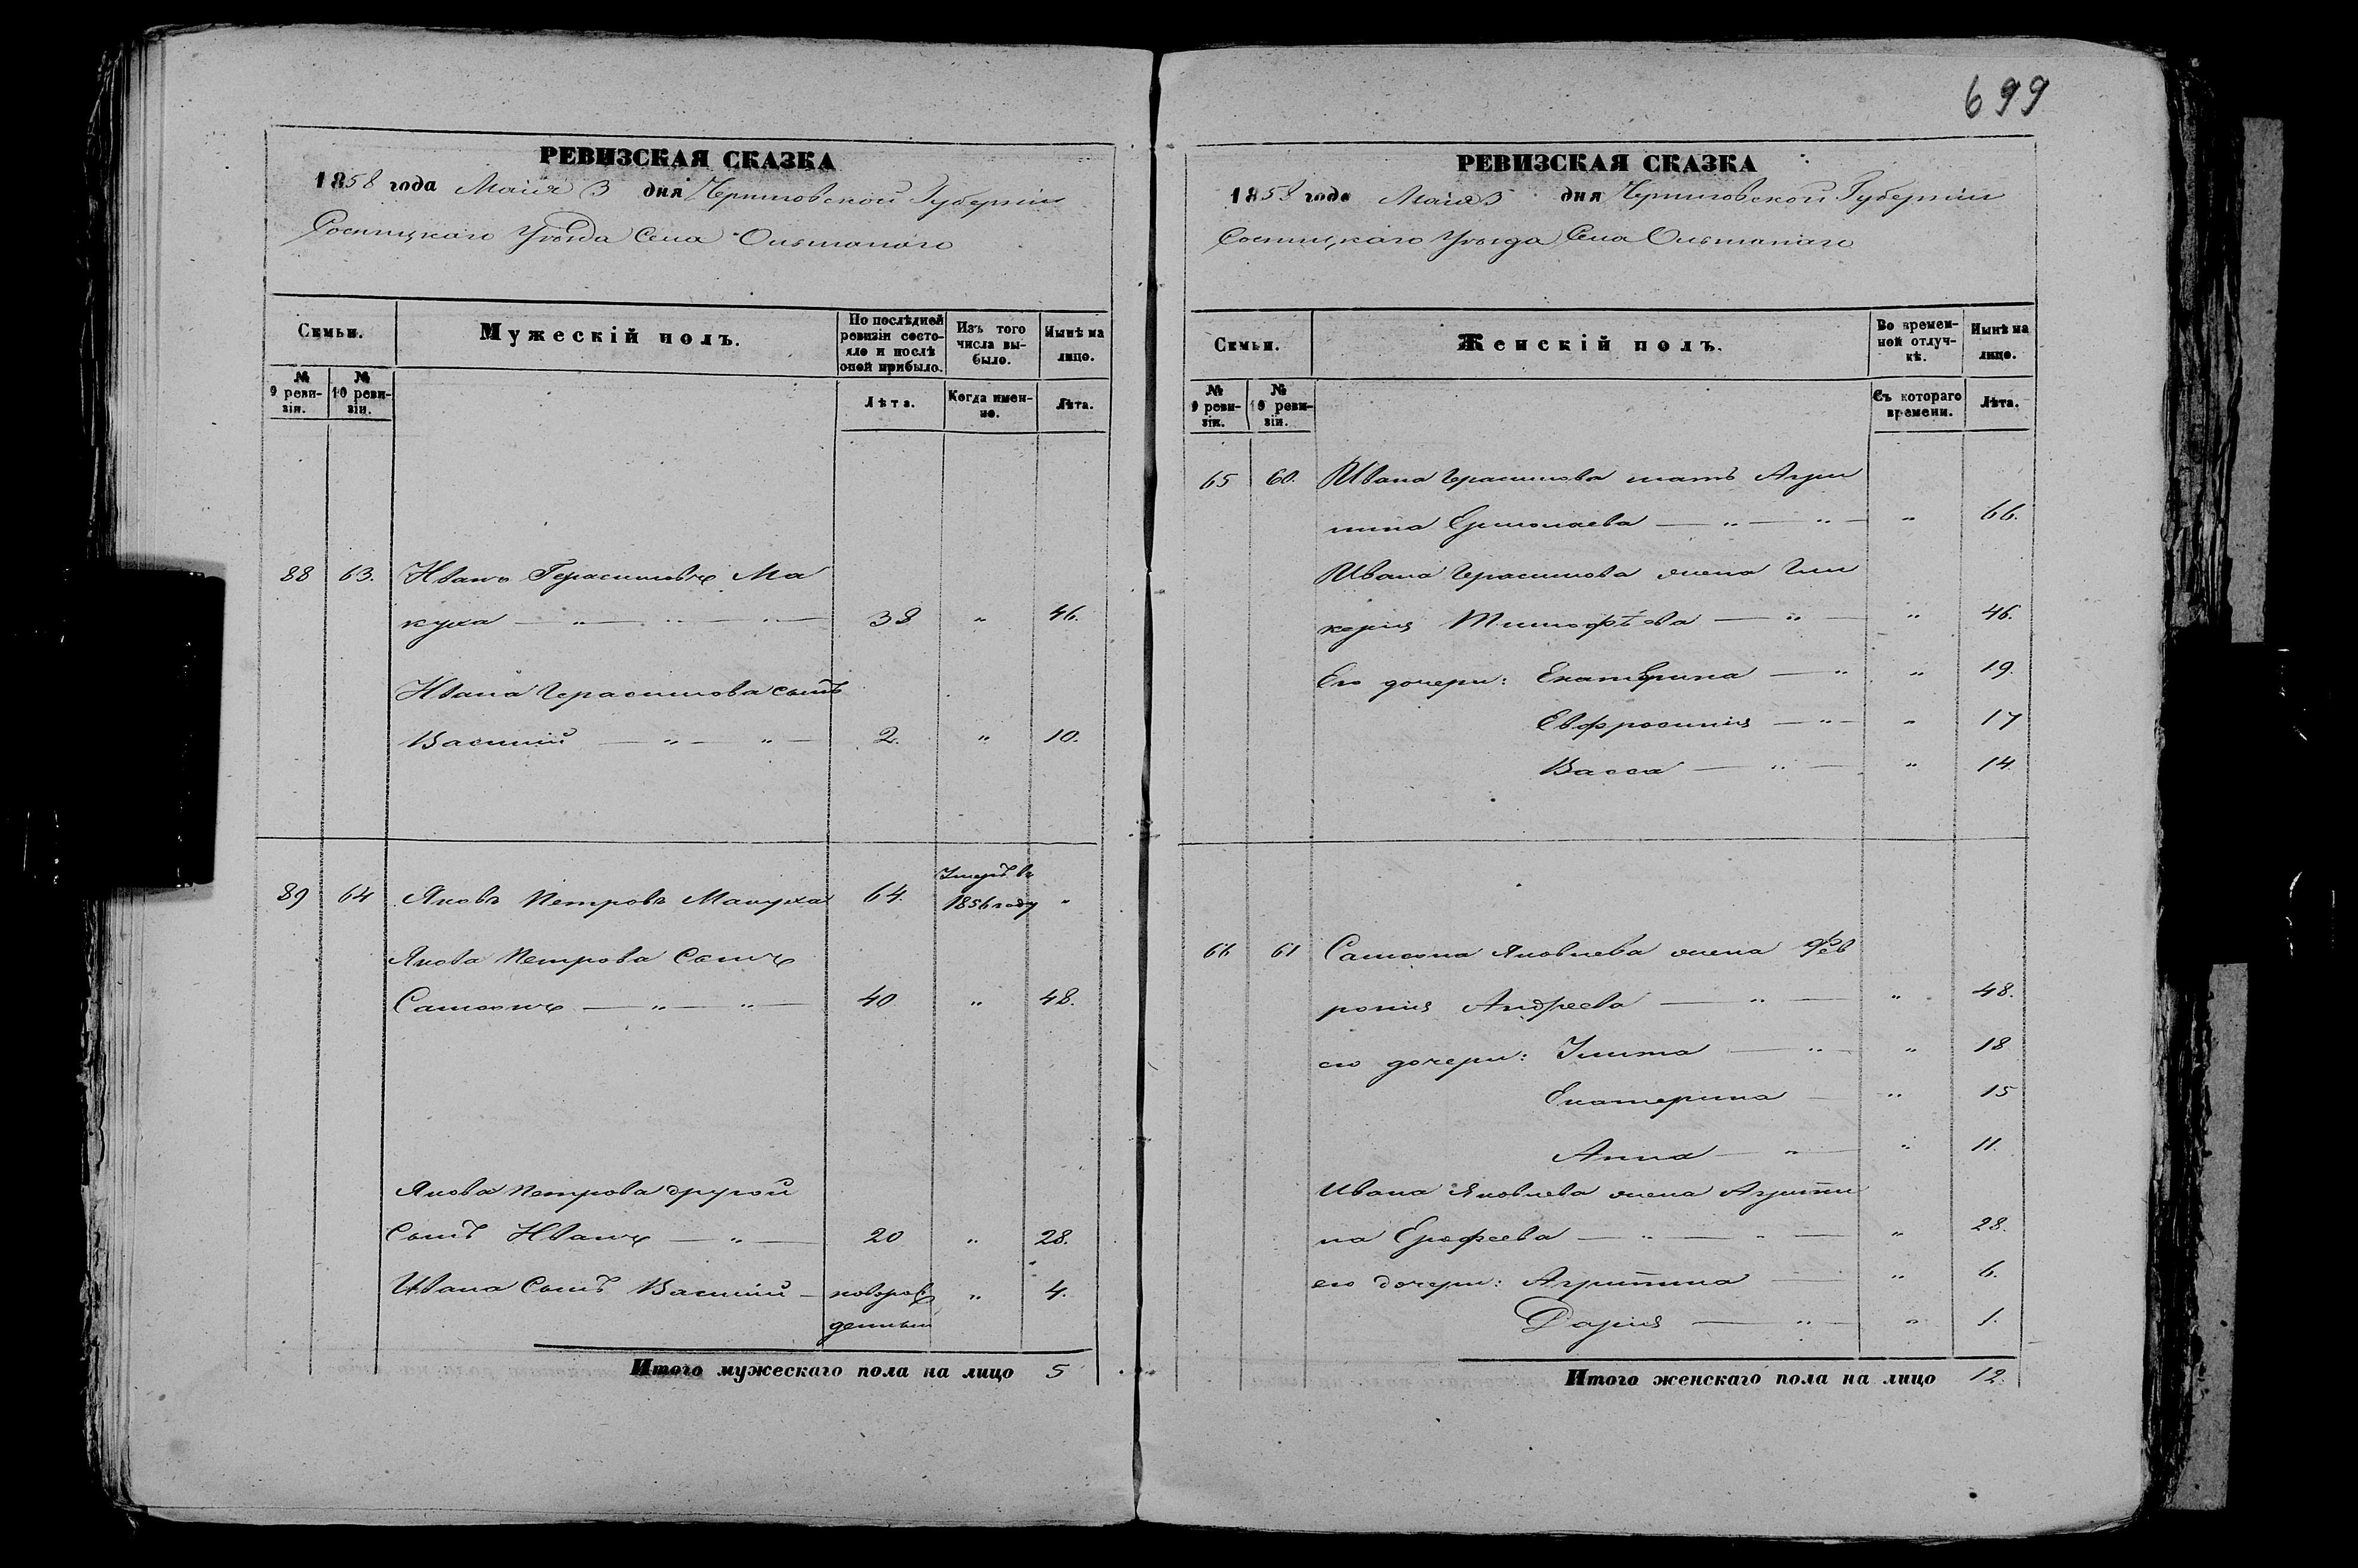 699
РЕВИЗСКАЯ СКАЗКА
1858 года Маія 3 дня Черниговской Губерніи
Сосницкаго Уѣзда Села Ольшанаго
Семьи.
Мужескій полъ.
По послѣдней ревизіи состояло и послѣ оной прибыло.
Изъ того числа выбыло.
Нынѣ на лицо.
№ 9 ревизіи.
№ 10 ревизіи.
Лѣта.
Когда именно.
Лѣта.
88 63. Иванъ Герасимовъ Ма
куха — „ — „ — „ — 38 „ 46.
Ивана Герасимова сынъ
Василій — „ — „ — 2. „ 10.
Умеръ въ
89 64 Яковъ Петровъ Макуха 64. 1856 году „
Якова Петрова Сынъ
Самсонъ — „ — „ — 40 „ 48.
Якова Петрова другой
Сынъ Иванъ — „ — 20 „ 28.
Ивана Сынъ Василій — новорож „ 4.
денный
Итого мужескаго пола на лицо 5
РЕВИЗСКАЯ СКАЗКА
1858 года Маія 3 дня Черниговской Губерніи
Сосницкаго Уѣзда Села Ольшанаго
Семьи.
Женскій полъ.
Во временной отлучкѣ.
Нынѣ на лицо.
№ 9 ревизіи.
№ 10 ревизіи.
Съ котораго времени.
Лѣта.
65 60. Ивана Герасимова мать Агри
пина Ермолаева — „ — „ — „ 66.
Ивана Герасимова жена Гли
керія Тимофѣева — „ — „ 46.
Его дочери: Екатерина — „ „ 19.
Евфросинія — „ — „ 17
Васса — „ — „ 14.
66 61 Самсона Яковлева жена Фев
ронія Андреева — „ — „ 48.
его дочери: Улита — „ — „ 18
Екатерина — „ 15
Анна — „ — „ 11.
Ивана Яковлева жена Агрипи
на Ерофеева — „ — „ — „ 28.
его дочери: Агрипина — „ 6.
Дарія — „ — „ 1.
Итого женскаго пола на лицо 12.